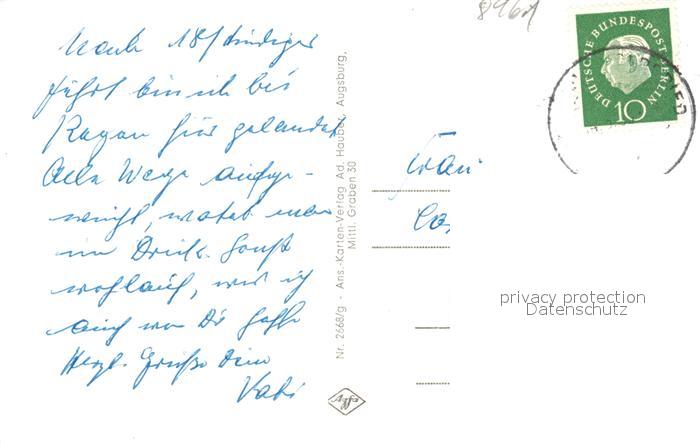 Nach 18 stündiger
Fahrt bin ich bei
Regen hier gelandet
Alle Wege aufge-
weicht, watet man
im Dreck. Sonst
wohlauf, wie ich
auch von Dir hoffe
Herzl. Grüße Dein
Vati
Nr. 2668/g - Ans.-Karten-Verlag Ad. Hauber, Augsburg,
Mittl. Graben 30
Agfa
Frau
DEUTSCHE BUNDESPOST BERLIN
10
privacy protection
Datenschutz